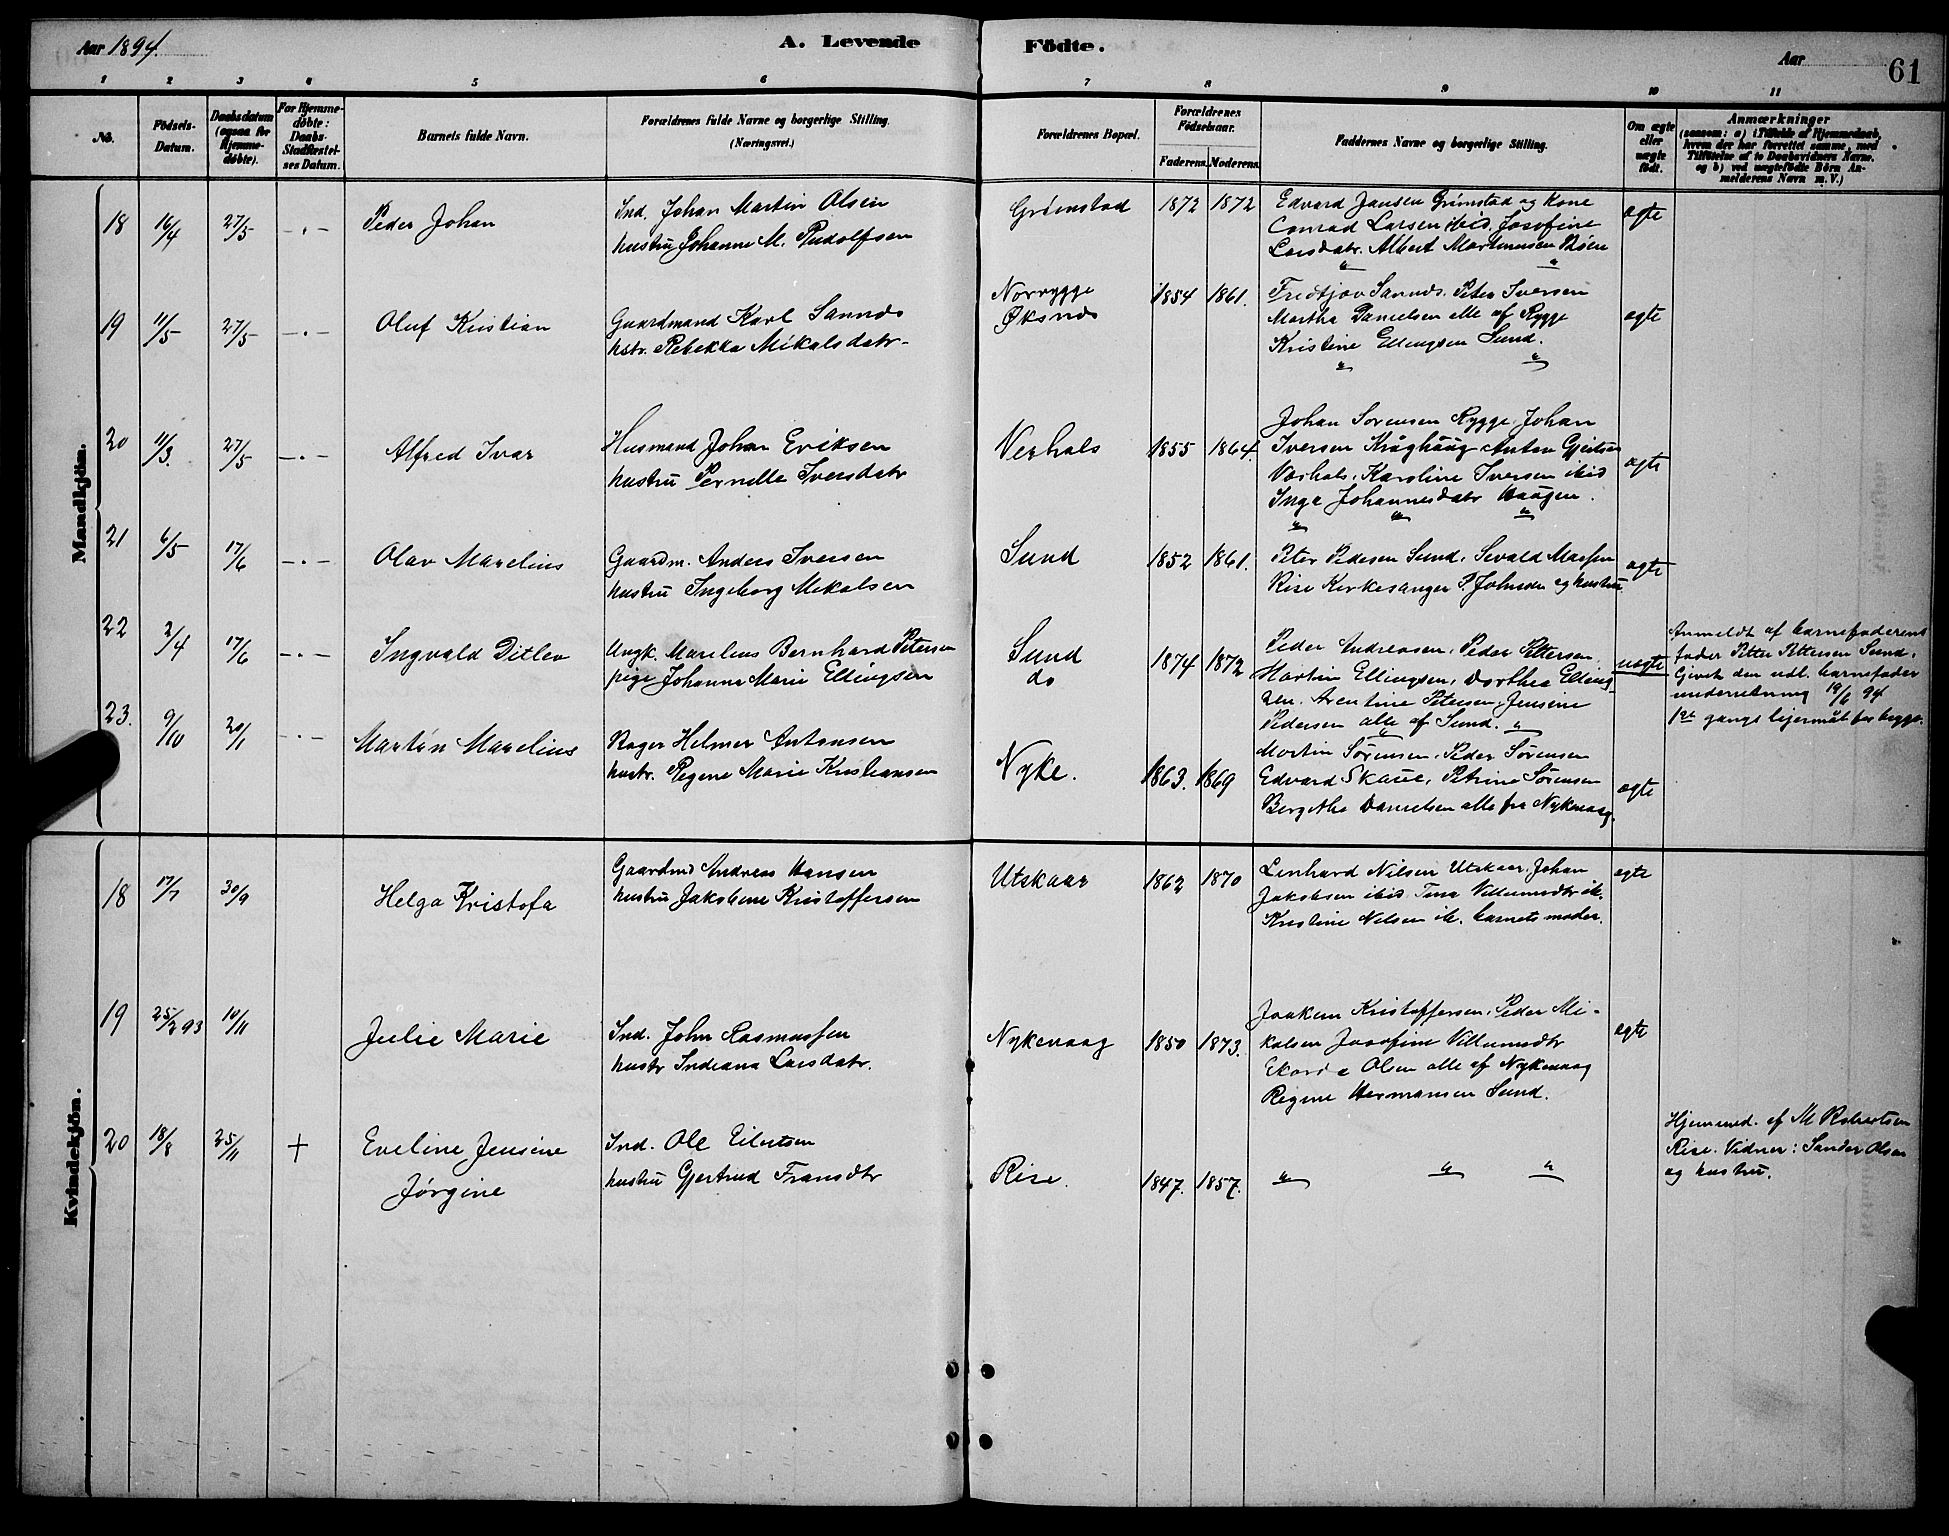 Aar 1894.
A. Levende Födte.
Aar
61
1 2 3 4 5 6 7 8 9 10 11
No.
Födsels-Datum.
Daabsdatum (ogsaa for Hjemme-døbte).
For Hjemme-døbte: Daabs-Stadfæstel-ses Datum.
Barnets fulde Navn.
Forældrenes fulde Navne og borgerlige Stilling. (Næringsvei.)
Forældrenes Bopæl.
Forældrenes Födselsaar.
Faderens. Moderens.
Faddernes Navne og borgerlige Stilling.
Om ægte eller uægte födt.
Anmærkninger
(saasom: a) i Tilfælde af Hjemmedaab, hvem der har forrettet samme, med Tilföielse af to Daabsvidners Navne, og b) ved uægtefödte Börn An-melderens Navn m. V.)
Mandkjön.
18 16/4 27/5 -.- Peder Johan
Ind. Johan Martin Olsen
hustru Johanne M. Rudolfsen
Grimstad 1872 1872
Edvard Jansen Grimstad og Kone
Conrad Larsen ibid. Josefine
Larsdatr. Albert Martinussen Böen
ægte
19 11/5 27/5 -.- Oluf Kristian
Gaardmand Karl Sannds
hstr. Rebekka Mikalsdatr.
Norrygge
Øksnds
1854 1861.
Fredtjov Sannds. Peter Iversen
Martha Danielsen alle af Rygge
Kristine Ellingsen Sund.
ægte
20 11/3. 27/5 -.- Alfred Ivar
Husmand Johan Eriksen
hustru Pernelle Iversdatr
Verhals 1855 1864.
Johan Sorensen Rygge Johan
Iversen Kråghaug Anton Gjertsen
Vorhals, Karoline Iversen ibid
Inga Johannesdatr Haugen.
ægte
21 6/5 17/6 -.- Olav Marelius
Gaardm. Anders Iversen
hustru Ingeborg Mekalsen
Sund 1852 1861.
Peter Pedersen Sund. Sevald
Rise Kirkesanger P. Johnsen og hustru
ægte
22 2/4 17/6 -.- Ingvald Ditlev
Ungk. Marelius Bernhard Petersen
pige Johanna Marie Ellingsen
Sund
do
1874 1872
Peder Andreasen. Peder Pettersen
Martin Ellingsen, Dorthea Elling-
sen. Arentine Petersen, Jensine
Pedersen alle af Sund.
uægte
Anmeldt af barnefaderens
fader Petter Pettersen Sund.
Givet den udl. barnefader
underretning 19/6 94
1ste gangs lejermål for begge.
23. 9/10 20/1 -.- Martin Marelius
Roger Helmer Antonsen
hustr. Regine Marie Kristiansen
Nyke. 1863. 1869
Martin Sørensen. Peder Sørensen
Edvard Skaue, Petrine Sörensen
Bergithe Danielsen alle fra Nykvaag.
ægte
Kvindekjön.
18 17/7 30/9 Helga Kristofa
Gaardmd Andreas Hansen
hustru Jakobine Kristoffersen
Utskaar 1862 1870
Lenhard Nilsen Utskaar, Johan
Jakobsen ibid. Tina Villumsdtr ib.
Kristine Nilsen ib. barnets moder.
ægte
19 25/2 93 10/11 Julie Marie
Ind. John Rasmussen
hustr Indiana Larsdatr.
Nykevaag 1850 1873.
Joakim Kristoffersen, Peder Mi-
kalsen Josefine Villumsdtr
Olsen alle af Nykevaag
Regine Hermansen Sund.
ægte
20 18/8 25/11 + Eveline Jensine
Jørgine
Ind. Ole Eilertsen
hustru Gjertrud Fransdtr
Rise. 1847. 1857.
" " "
Hjemmed. af M Robertsen
Rise. Vidner: Sander Olsen
og hustru.